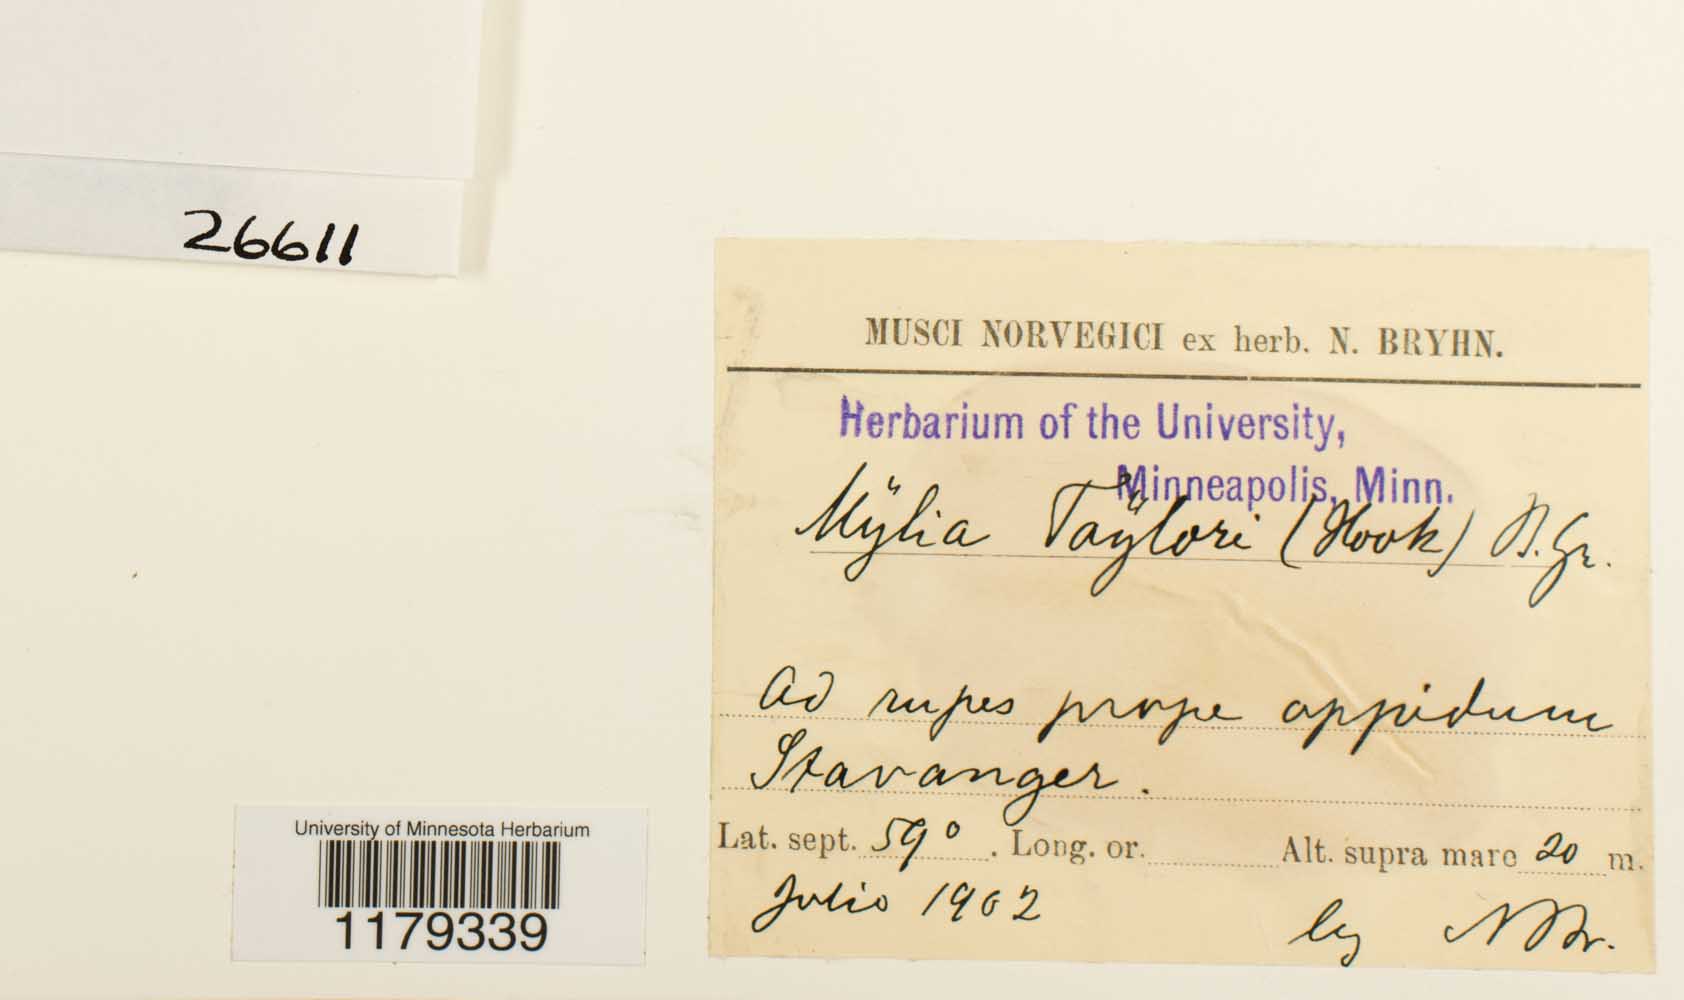 26611
MUSCI NORVEGICI ex herb. N. BRYHN.
Herbarium of the University,
Minneapolis, Minn.
Mÿlia Taÿlori (Hook) B. Gr.
Ad rupes prope oppidum
Stavanger.
Lat. sept. 59° . Long. or. Alt. supra mare 20 m.
Julio 1902
leg N Br.
University of Minnesota Herbarium
1179339